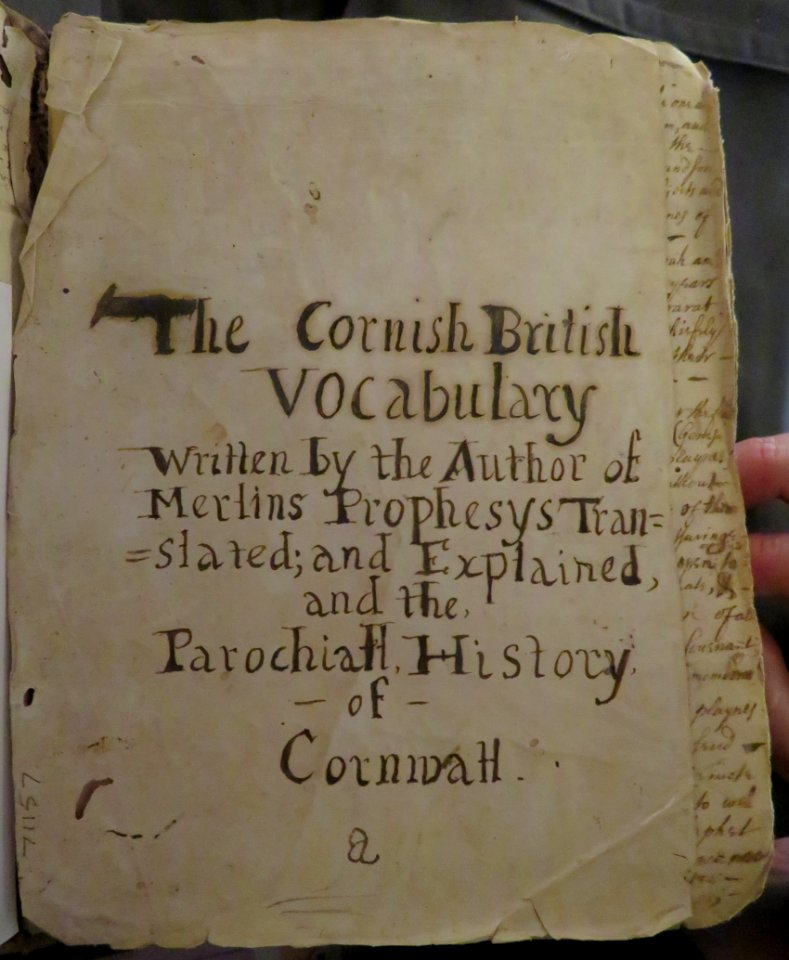 The Cornish British
Vocabulary
Written by the Author of
Merlins Prophesys Tran=
=slated; and Explained,
and the,
Parochiall, History,
- of -
Cornwall.
a
71157
of
years
of
playnes
to